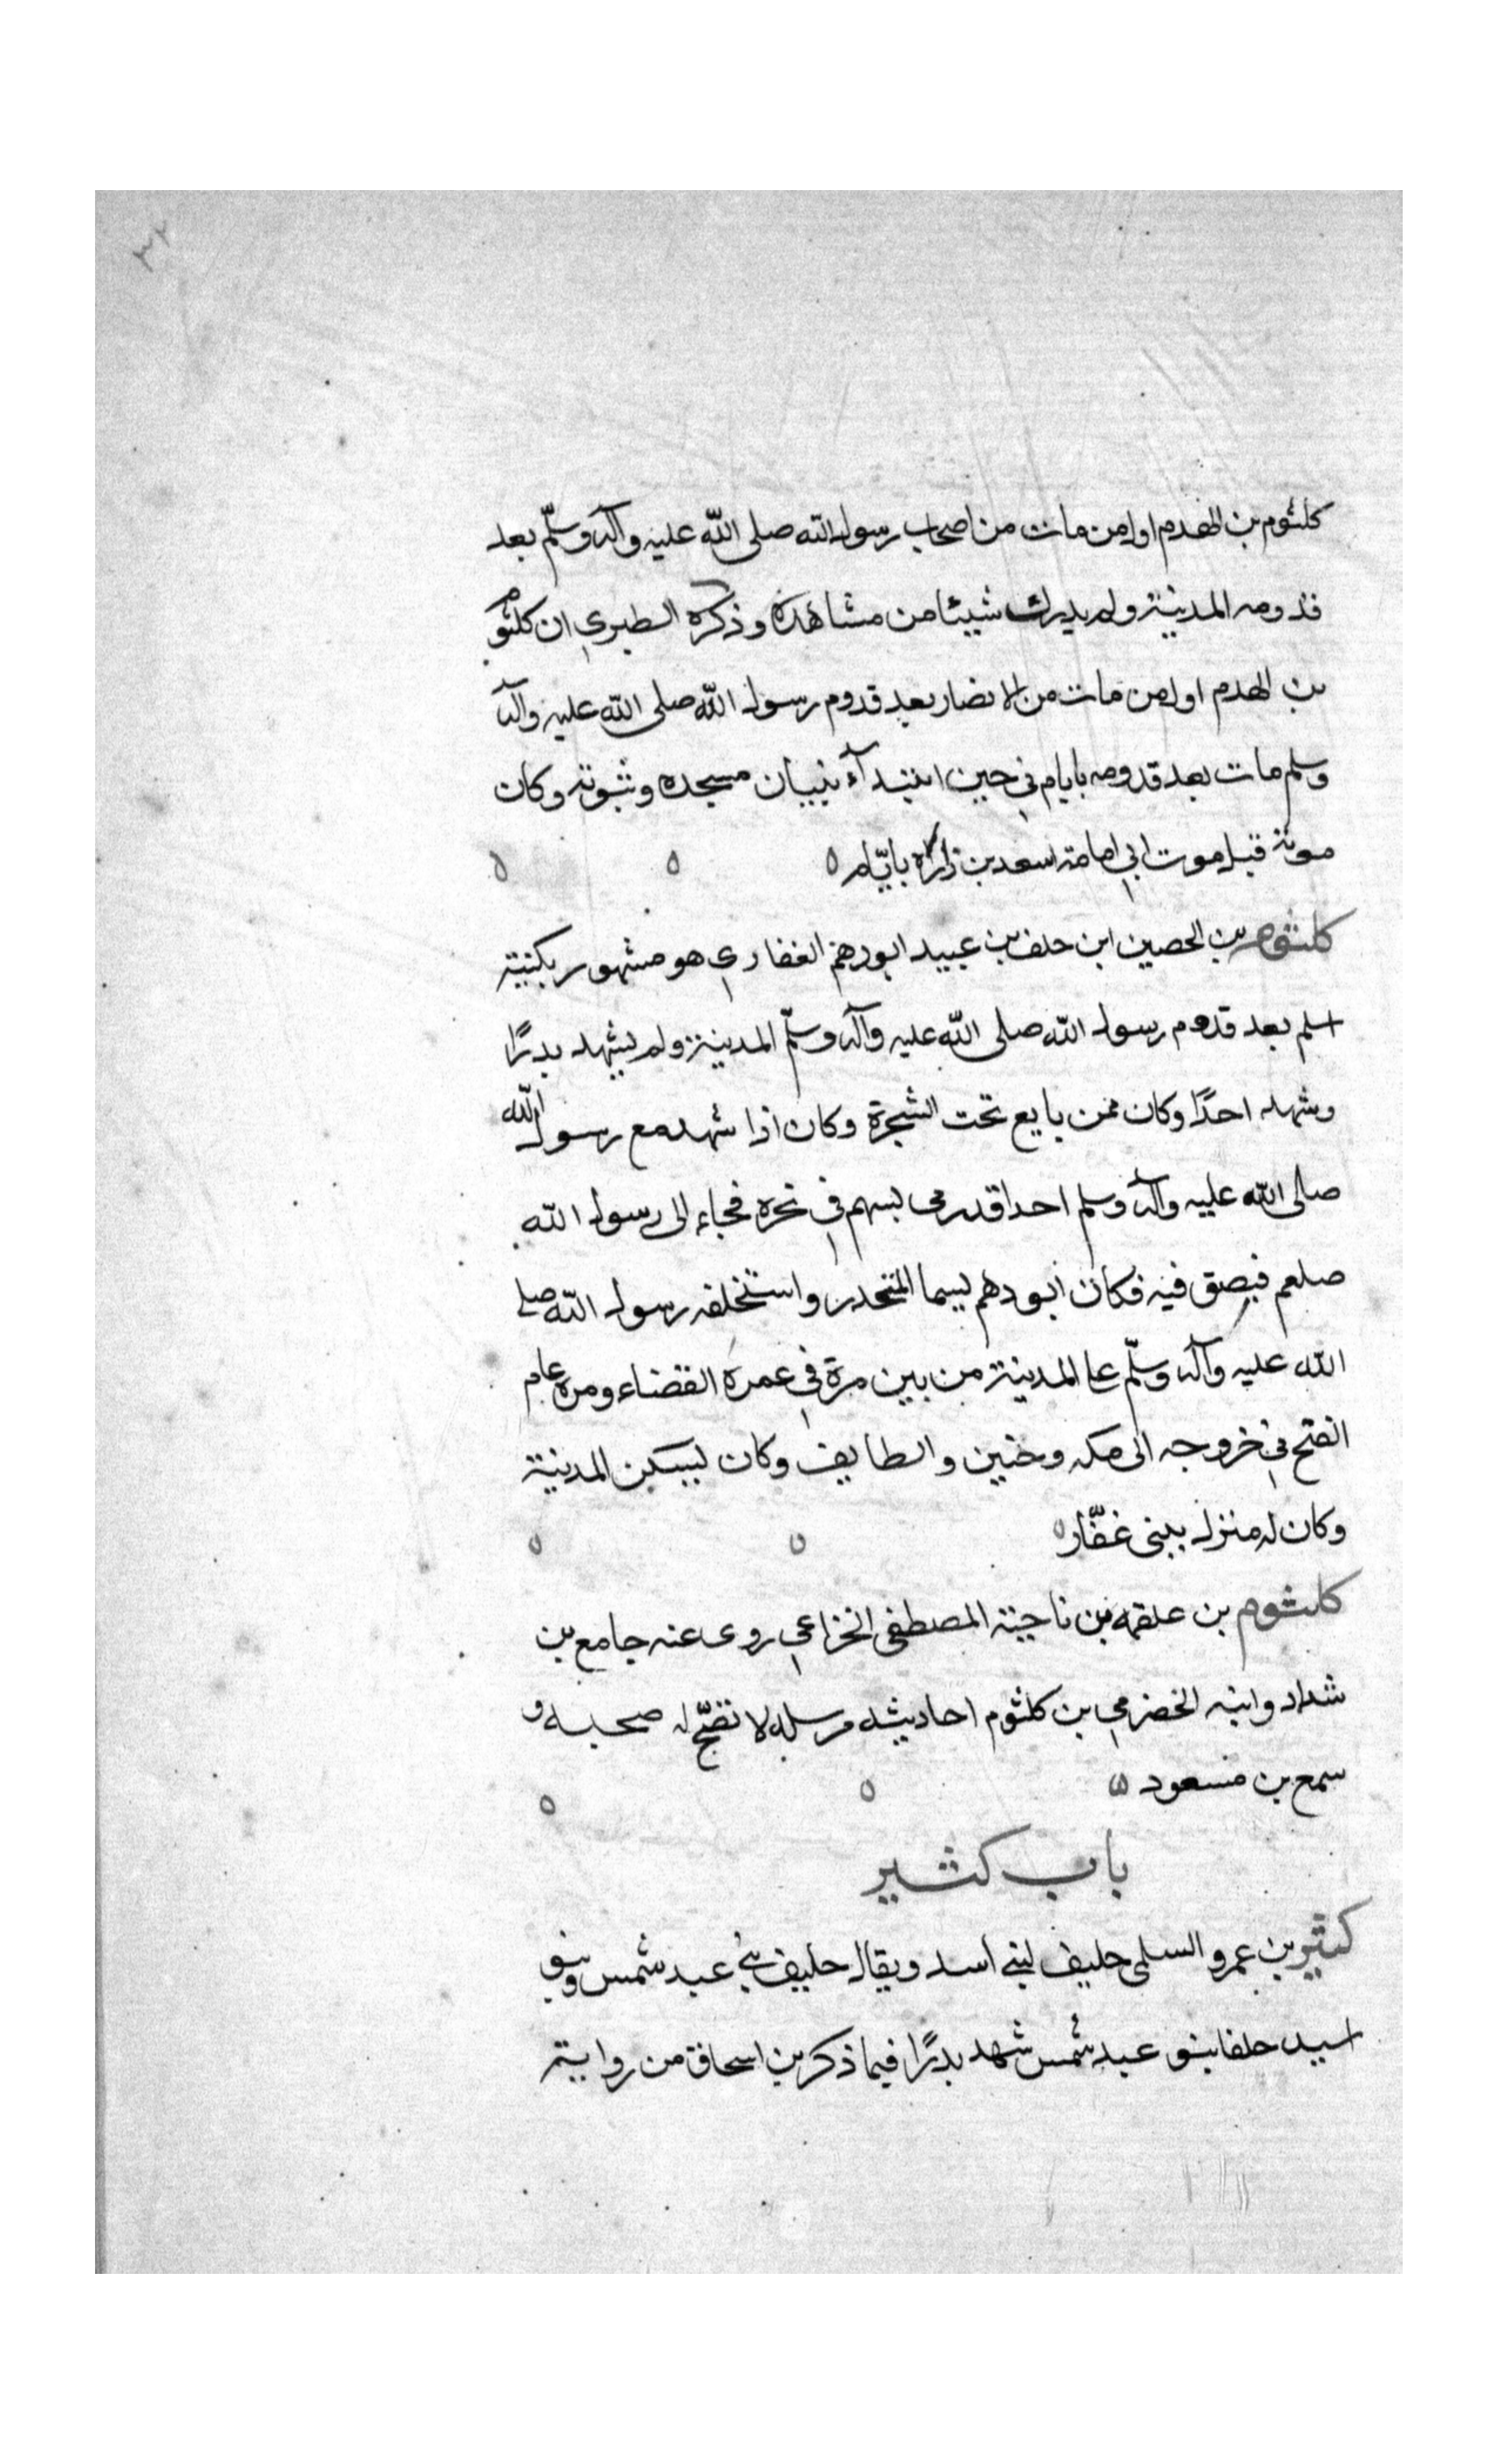 ٣٢
كلثوم بن الهدم اول من مات من اصحاب رسول الله صلى الله عليه وآله وسلّم بعد
قدومه المدينة ولم يدرك شيئا من مشاهده وذكره الطبري ان كلثوم
بن الهدم اول من مات من الانصار بعد قدوم رسول الله صلى الله عليه وآله
وسلم مات بعد قدومه بايام في حين ابتدآء بنيان مسجده وبيوته وكان
موته قبل موت ابي امامة اسعد بن زرارة بايّام
كلثوم بن الحصين ابن خلف بن عبيد ابورهم الغفاري هو مشهور بكنيته
اسلم بعد قدوم رسول الله صلى الله عليه وآله وسلّم المدينة ولم يشهد بدرًا
وشهد احدًا وكان ممن بايع تحت الشجرة وكان اذا شهد مع رسول الله
صلى الله عليه وآله وسلم احدا قد رمى بسهم في نحره فجاء الى رسول الله
صلعم فبصق فيه فكان ابو دهم يسما المنحدر واستخلفه رسول الله صلى
الله عليه وآله وسلّم على المدينة من بين مرة في عمرة القضاء ومرة عام
الفتح في خروجه الى مكه وحنين والطايف وكان يسكن المدينة
وكان له منزل ببنى غفّار
كلثوم بن علقمه بن ناجية المصطفى الخزاعي روى عنه جامع بن
شداد وابنه الخضرمي بن كلثوم احاديثه مرسله لا تصّح له صحبه و
سمع بن مسعود
باب كثير
كثير بن عمرو السلمى حليف لبني اسد ويقال حليف بني عبد شمس وبنو
اسيد حلفا بنو عبد شمس شهد بدرًا فيما ذكر بن اسحاق من روايته